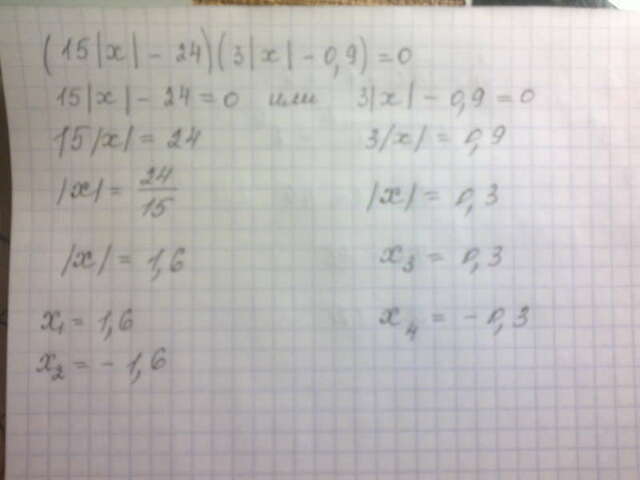 (15|x| - 24)(3|x| - 0,9) = 0
15|x| - 24 = 0 или 3|x| - 0,9 = 0
15|x| = 24 3|x| = 0,9
|x| = 24/15 |x| = 0,3
|x| = 1,6 x₃ = 0,3
x₁ = 1,6 x₄ = - 0,3
x₂ = - 1,6